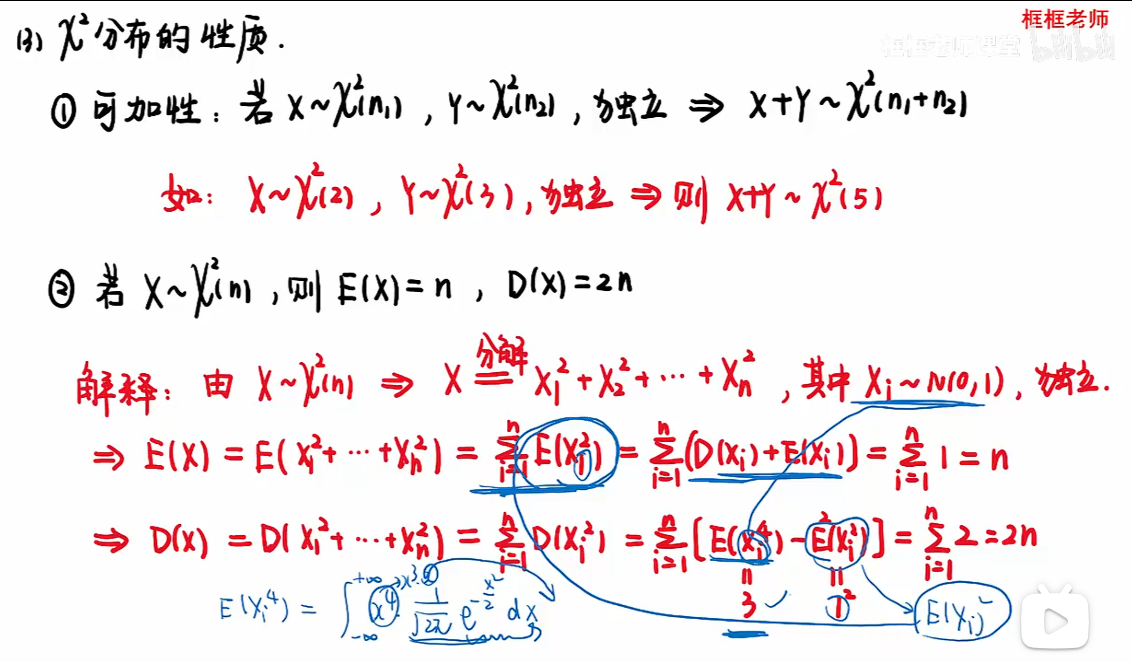 框框老师
框框老师课堂 bilibili
(3) χ²分布的性质.
① 可加性: 若 X~χ²(n₁), Y~χ²(n₂), 独立 ⇒ X+Y~χ²(n₁+n₂)
如: X~χ²(2), Y~χ²(3), 独立 ⇒ 则 X+Y~χ²(5)
② 若 X~χ²(n), 则 E(X)=n, D(X)=2n
解释: 由 X~χ²(n) ⇒ X 分解= X₁²+X₂²+⋯+Xₙ², 其中 Xᵢ~N(0,1), 独立.
⇒ E(X)=E(X₁²+⋯+Xₙ²)=∑ᵢ₌₁ⁿ E(Xᵢ²)=∑ᵢ₌₁ⁿ(D(Xᵢ)+E(Xᵢ))=∑ᵢ₌₁ⁿ 1=n
⇒ D(X)=D(X₁²+⋯+Xₙ²)=∑ᵢ₌₁ⁿ D(Xᵢ²)=∑ᵢ₌₁ⁿ[E(Xᵢ⁴)-E²(Xᵢ²)]=∑ᵢ₌₁ⁿ 2=2n
3 ✓ 1²
E(Xᵢ⁴)=∫₋∞⁺∞ x⁴ 1/√2π e^(-x²/2) dx E(Xᵢ)²